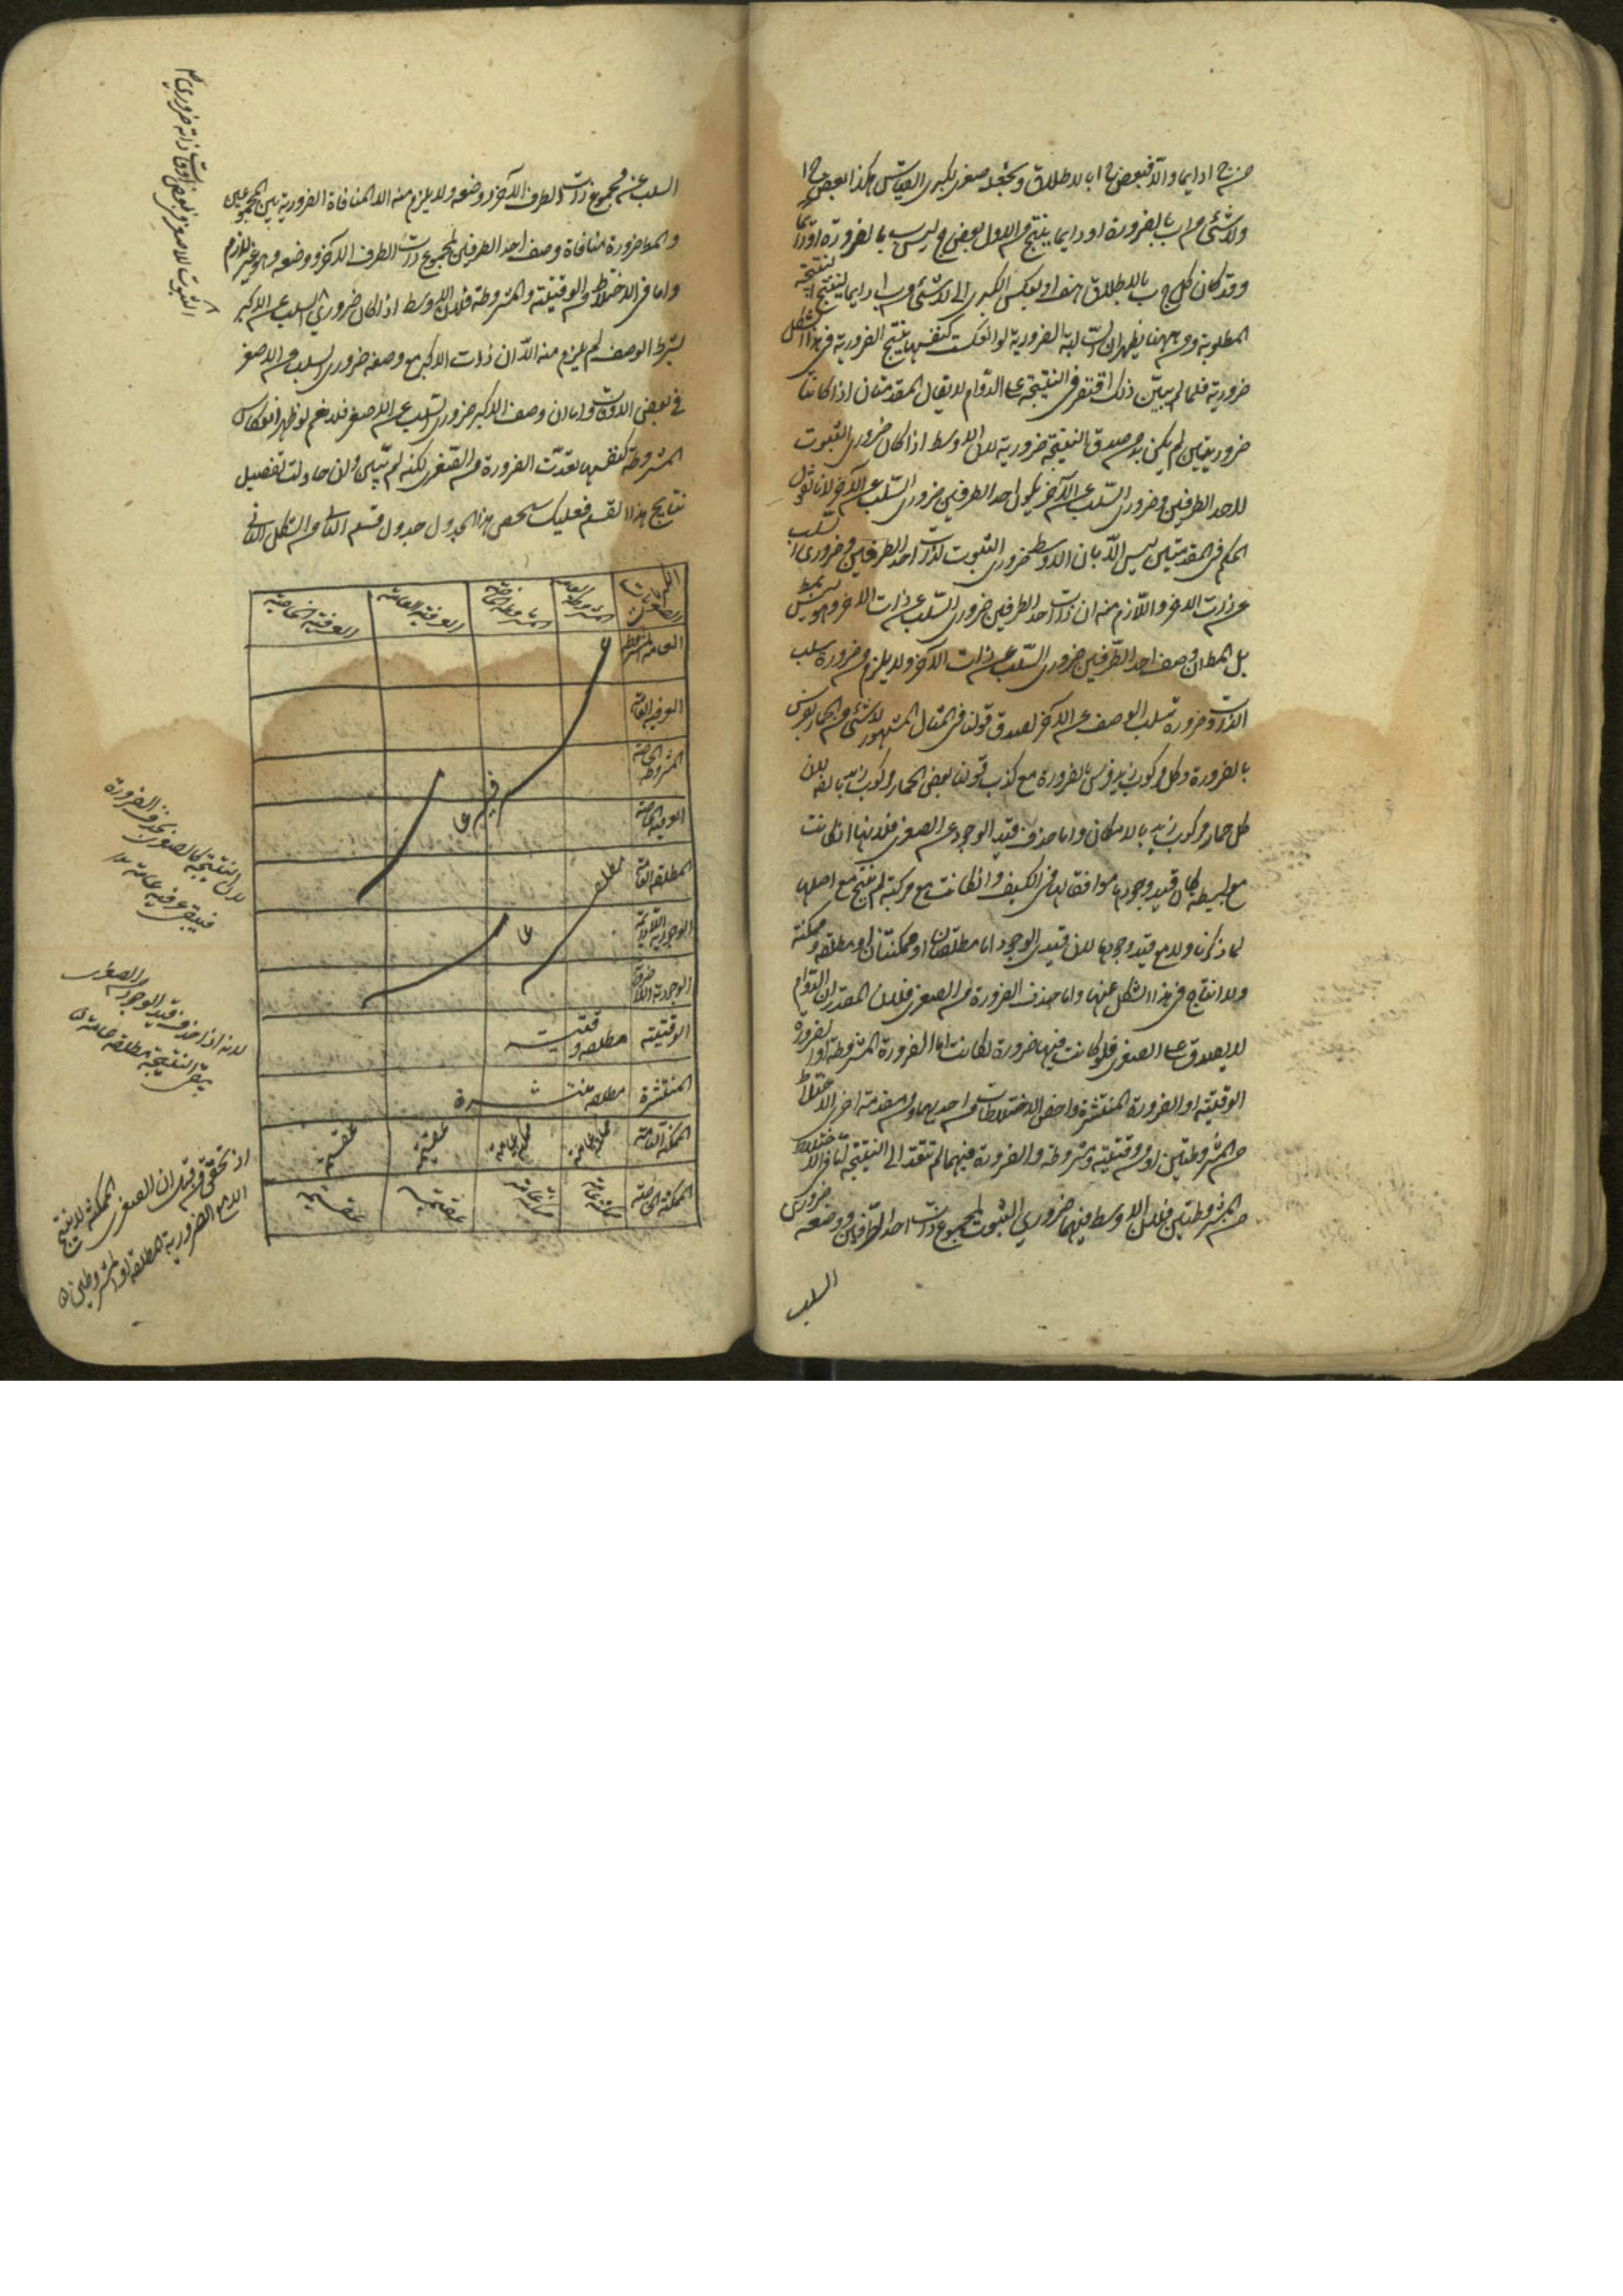 ولا شئ من ا ب بالضرورة او دايما ينتج من الاول بعض ج ليس ب بالضرورة او دايما
وقد كان كل ج ب بالاطلاق هف او بعكس الكبرى الى لا شئ من ب ا دايما لينتج النتيجة
المطلوبة ومن ههنا يظهر ان السالبة الضرورية لو انعكست كنفسها ينتج الضرورية في هذا الشكل
ضرورية فلما لم يتبين ذلك اقتصر في النتيجة على الدوام لا يقال المقدمتان اذا كانتا
ضروريتين لم يكن بد من صدق النتيجة ضرورية لان الاوسط اذا كان ضروري الثبوت
لاحد الطرفين وضروري السلب عن الآخر يكون احد الطرفين ضروري السلب عن الآخر لانا نقول
الحكم في المقدمتين ليس الا بان الاوسط ضروري الثبوت لذات احد الطرفين وضروري السلب
عن ذات الاخر واللازم منه ان ذات احد الطرفين ضروري السلب عن ذات الاخر وهو ليس بمط
بل المط ان وصف احد الطرفين ضروري السلب عن ذات الآخر ولا يلزم من ضرورة سلب
الذات ضرورة سلب الوصف عن الآخر لصدق قولنا في المثال المشهور لا شئ من الحمار بفرس
بالضرورة وكل مركوب زيد فرس بالضرورة مع كذب قولنا بعض الحمار مركوب زيد بالض لان
كل حمار مركوب زيد بالامكان واما حذف قيد الوجود عن الصغرى فلانها ان كانت
مع بسيطة كان قيد وجودها موافقا لها في الكيف وان كانت مع مركبة لم ينتج مع اصلها
لما ذكرنا ولا مع قيد وجودها لان قيدي الوجود اما مطلقتان او ممكنتان او مطلقة وممكنة
ولا انتاج في هذا الشكل عنها واما حذف الضرورة من الصغرى فلان المقدر ان الدوام
لا يصدق على الصغرى فلو كانت فيها ضرورة لكانت اما الضرورة المشروطة او الضرورة
الوقتية او الضرورة المنتشرة واخص الاختلاطات من احديهما ومن مقدمة اخرى الاختلاط
من المشروطتين او من وقتية ومشروطة والضرورة فيهما لم تتعد الى النتيجة اما في الاختلاط
من المشروطتين فلان الاوسط فيهما ضروري الثبوت لمجموع ذات احد الطرفين ووصفه ضروري
السلب
السلب عن مجموع ذات الطرف الآخر ووصفه ولا يلزم منه الا المنافاة الضرورية بين المجموعين
والمط ضرورة منافاة وصف احد الطرفين لمجموع ذات الطرف الآخر ووصفه وهو غير لازم
واما في الاختلاط من الوقتية والمشروطة فلان الاوسط اذا كان ضروري السلب عن الاكبر
بشرط الوصف لم يلزم منه الا ان ذات الاكبر مع وصفه ضروري السلب عن الاصغر
في بعض الاوقات واما ان وصف الاكبر ضروري السلب عن الاصغر فلا نعم لو ظهر انعكاس
المشروطة كنفسها تعدت الضرورة من الصغرى لكنه لم يتبين وان حاولت تفصيل
نتايج هذا القسم فعليك بتفحص هذا الجدول جدول قسم الثاني من الشكل الثاني
الكبريات الصغريات المشروطة العامة المشروطة الخاصة العرفية العامة العرفية الخاصة
المشروطة العامة
العرفية العامة
المشروطة الخاصة
العرفية الخاصة
المطلقة العامة مطلقة
الوجودية اللادائمة عا
الوجودية اللاضرورية
الوقتية مطلقة وقتية
المنتشرة مطلقة منتشرة
الممكنة العامة ممكنة عامة ممكنة عامة عقيمة عقيمة
الممكنة الخاصة ممكنة عامة ممكنة عامة عقيمة عقيمة
لان النتيجة كالصغرى بحذف الضرورة
فيبقى عرفية عامة
لانه اذا حذف قيد الوجود من الصغرى
يبقى النتيجة مطلقة عامة
اذ تحقق فيما ان الصغرى الممكنة لا ينتج
الا مع الضرورية المطلقة او المشروطتين